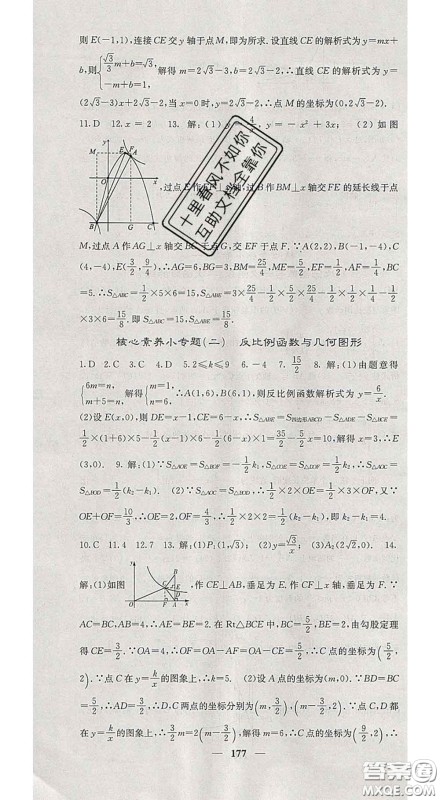 则 E(-1,1),连接 CE 交 y 轴于点 M,即为所求.设直线 CE 的解析式为 y=mx+
b,则{√3/3 m+b=√3, -m+b=1, 解得 m=2√3-3,b=2√3-2,∴直线 CE 的解析式为 y=
(2√3-3)x+2√3-2,当 x=0 时,y=2√3-2,∴点 M 的坐标为(0,2√3-2).
11.D 12.x=2 13.解:(1) y=-x²+3x; (2)如图
M,过点 A 作 AG⊥x 轴交 BC 于点 G,交 EF 于点 F.∵A(2,2),B(-1,-4),C
(4,-4),E(3/2,9/4),∴AG=6,BG=3,BM=25/4,ME=5/2,EF=1/2,AF=1/4,BC
=5.∴S△ABC=1/2×5×6=15,S△ABE=3×25/4-1/2×5/2×25/4-1/2×1/2×1/4-1/2
×3×6=15/8.即 S△ABC=15,S△ABE=15/8.
核心素养小专题(二) 反比例函数与几何图形
1.D 2.C 3.A 4.D 5.2≤k≤9 6.-4 7.15/2 8.解:(1)由题意得
{6m=n, m+5=n, 解得{m=1, n=6, ∴A(1,6),B(6,1),则反比例函数解析式为 y=6/x.
(2)设 E(x,0),则 DE=x-1,CE=6-x,∴S△ABE=S四边形ABCD-S△ADE-S△BCE=
1/2×(1+6)×5-1/2(x-1)×6-1/2(6-x)×1=35/2-5/2x=10,解得 x=3,∴E
(3,0). 9.解:(1)∵S△AOE=S△BOF=-1/2k₁,S△COE=S△DOF=1/2k₂,∴S△AOC=
S△BOD=1/2(k₂-k₁). (2)∵S△AOC=S△BOD,∴1/2×2×OE=1/2×4×OF,又∵
OE+OF=10/3,∴OE=2OF=4/3,∴1/2×2×2=1/2(k₂-k₁),即 k₂-k₁=4.
10.C 11.4 12.7 13.解:(1)P₁(1,√3); (2)y=√3/x; (3)A₂(2√2,0). 14.
解:(1)如图 ,作 CE⊥AB,垂足为 E.作 CF⊥x 轴,垂足为 F.∵
AC=BC,AB=4,∴AE=BE=2.在 Rt△BCE 中,BC=5/2,BE=2,由勾股定理
得 CE=3/2.∵OA=4,∴OF=OA-AF=OA-CE=5/2,∴C 点的坐标为(5/2,
2).∵点 C 在 y=k/x 的图象上,∴k=5. (2)设 A 点的坐标为(m,0).∵BD=BC=
5/2,∴AD=3/2,∴D,C 两点的坐标分别为(m,3/2),(m-3/2,2).∵点 C,D 都
在 y=k/x 的图象上,∴3/2m=2(m-3/2),解得 m=6,∴C 点的坐标为(9/2,2),∴
177
十里春风不如你
互助文档全靠你
答案圈
MXQE.COM